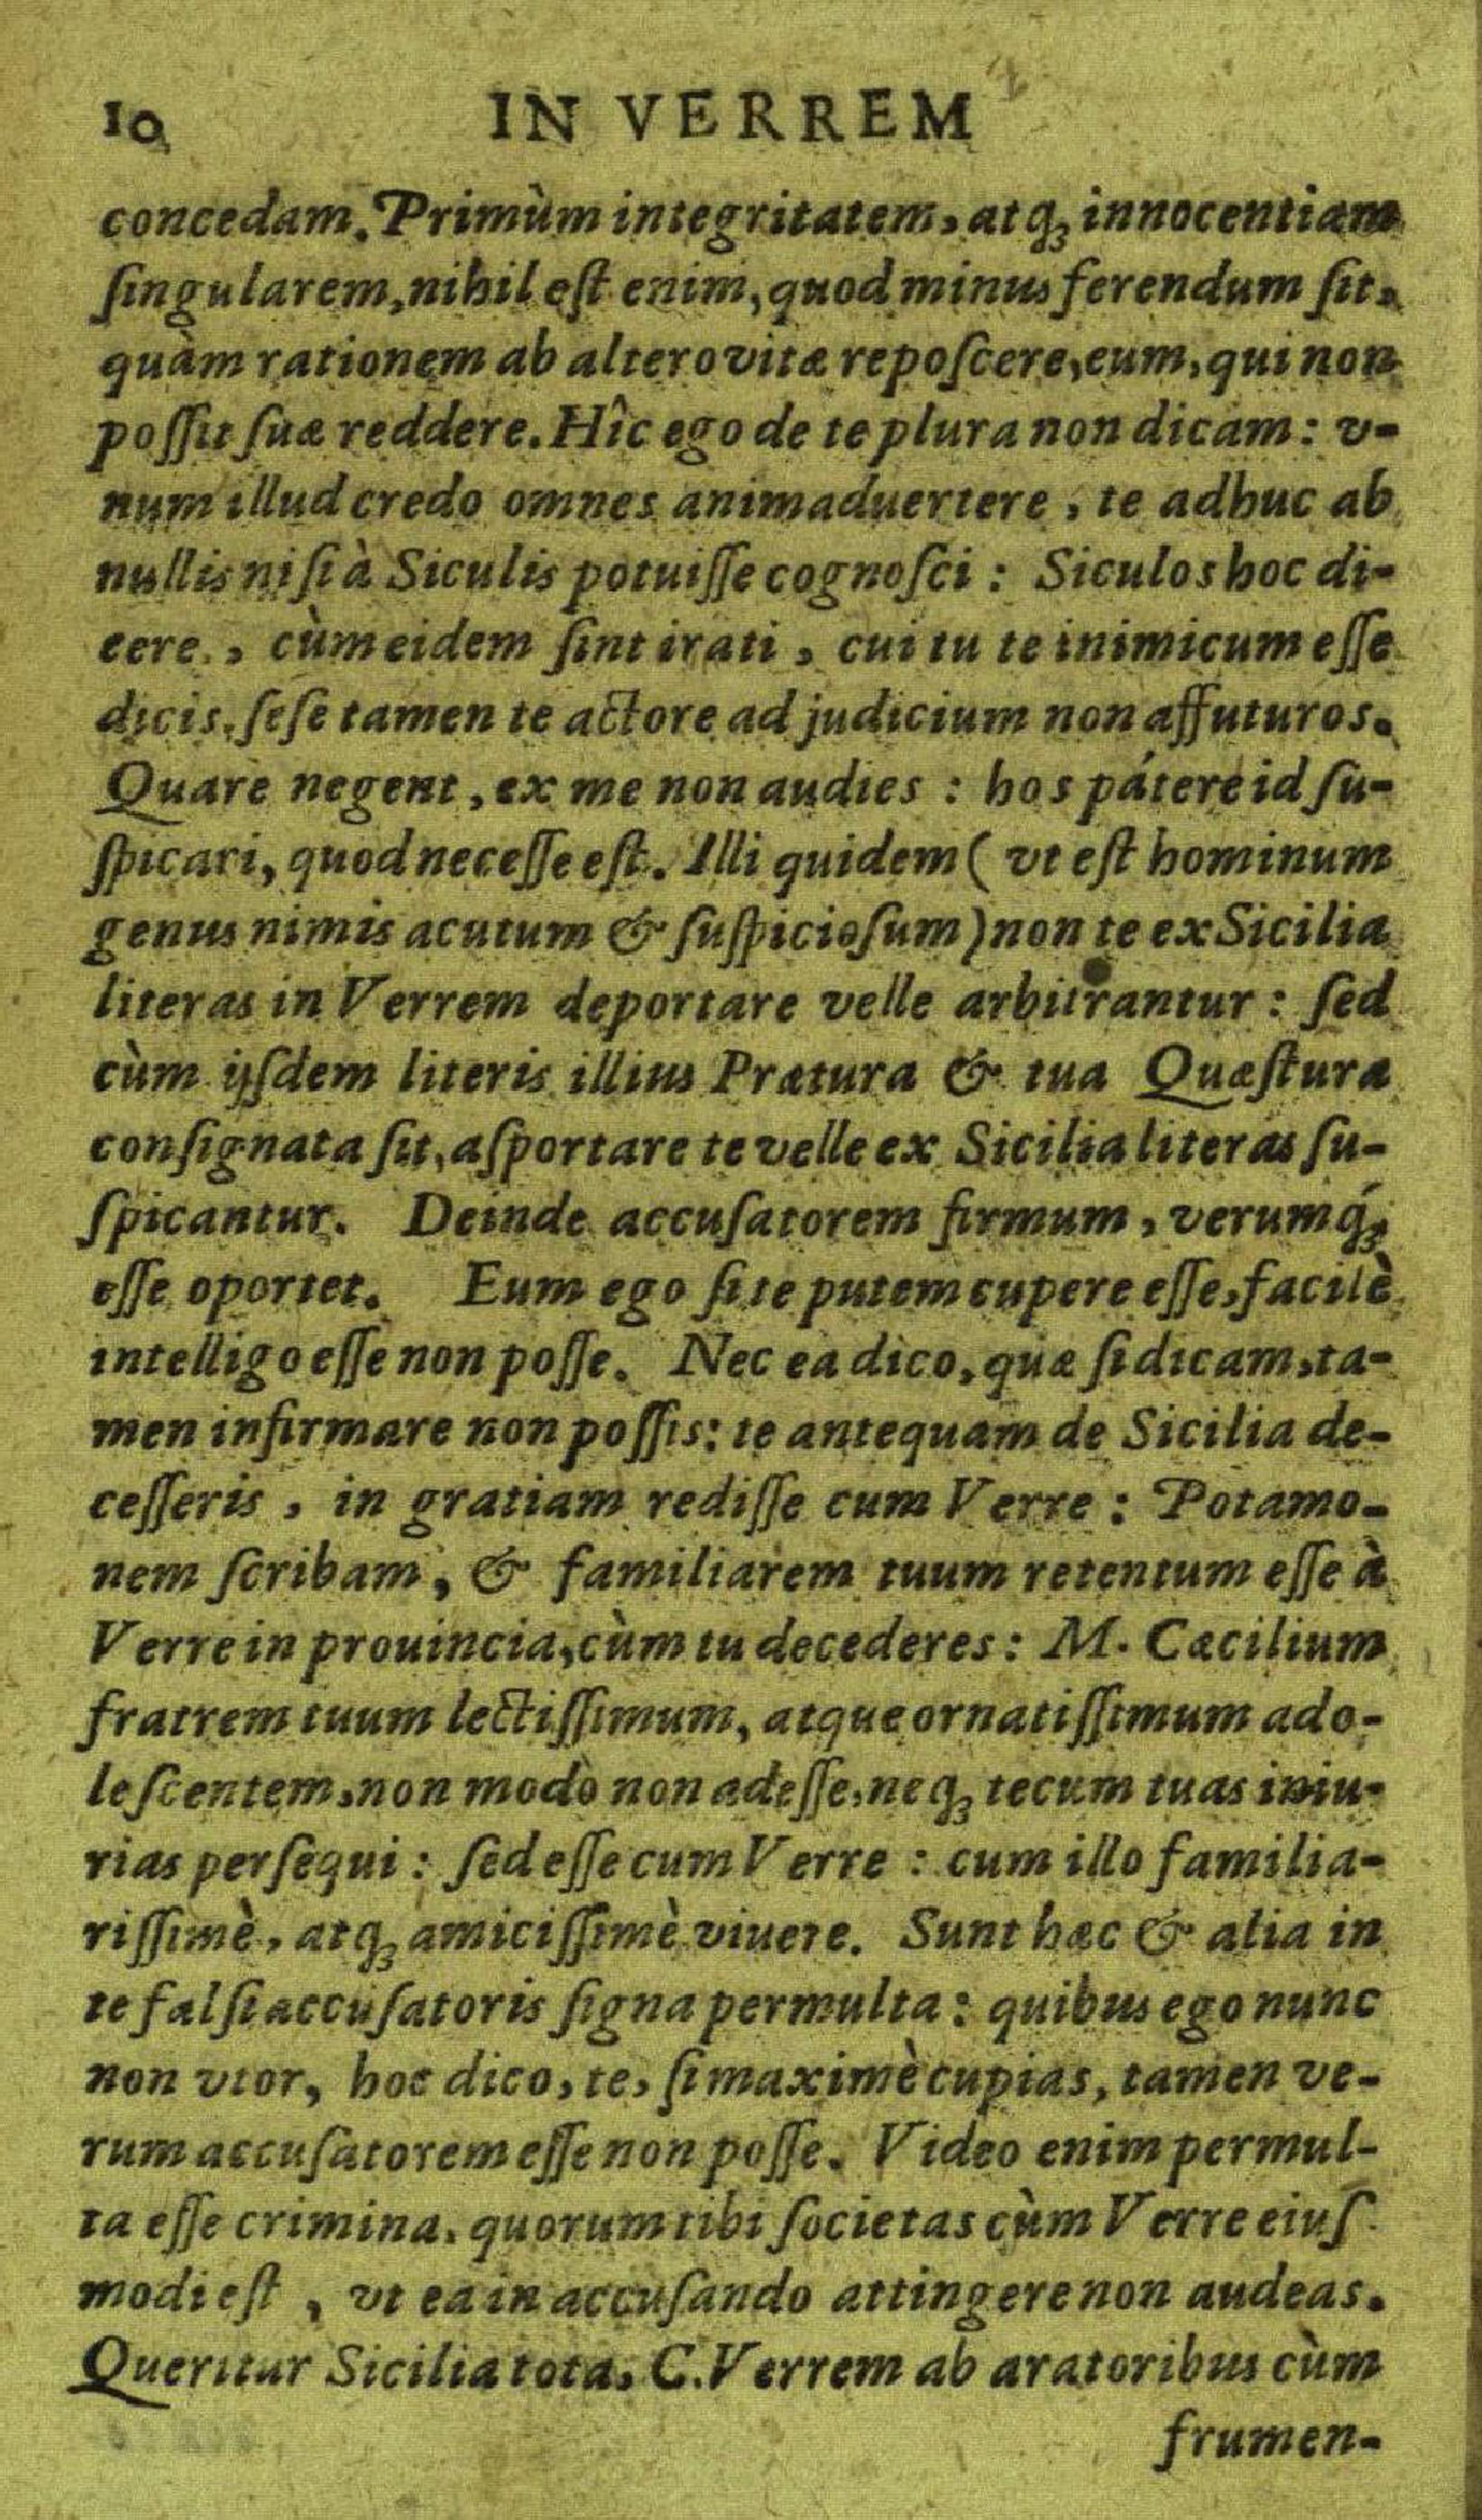 10 IN VERREM
concedam. Primùm integritatem, atq́; innocentiam
ſingularem, nihil eſt enim, quod minus ferendum ſit,
quàm rationem ab altero vitæ repoſcere, eum, qui non
poſſit ſuæ reddere. Hîc ego de te plura non dicam: v-
num illud credo omnes animaduertere, te adhuc ab
nullis niſi à Siculis potuiſſe cognoſci: Siculos hoc di-
cere, cùm eidem ſint irati, cui tu te inimicum eſſe
dicis, ſeſe tamen te actore ad judicium non affuturos.
Quare negent, ex me non audies: hos pátere id ſu-
ſpicari, quod neceſſe eſt. Illi quidem (vt eſt hominum
genus nimis acutum & ſuſpicioſum) non te ex Sicilia
literas in Verrem deportare velle arbitrantur: ſed
cùm ijſdem literis illius Prætura & tua Quæſtura
conſignata ſit, aſportare te velle ex Sicilia literas ſu-
ſpicantur. Deinde accuſatorem firmum, verumq́;
eſſe oportet. Eum ego ſi te putem cupere eſſe, facilè
intelligo eſſe non poſſe. Nec ea dico, quæ ſi dicam, ta-
men infirmare non poſſis: te antequam de Sicilia de-
ceſſeris, in gratiam rediſſe cum Verre: Potamo-
nem ſcribam, & familiarem tuum retentum eſſe à
Verre in prouincia, cùm tu decederes: M. Cæcilium
fratrem tuum lectiſſimum, atque ornatiſſimum ado-
leſcentem, non modò non adeſſe, neq; tecum tuas iniu-
rias perſequi: ſed eſſe cum Verre: cum illo familia-
riſſimè, atq; amiciſſimè viuere. Sunt hæc & alia in
te falſi accuſatoris ſigna permulta: quibus ego nunc
non vtor, hoc dico, te, ſi maximè cupias, tamen ve-
rum accuſatorem eſſe non poſſe. Video enim permul-
ta eſſe crimina, quorum tibi ſocietas cùm Verre eiuſ
modi eſt, vt ea in accuſando attingere non audeas.
Queritur Sicilia tota, C. Verrem ab aratoribus cùm
frumen-